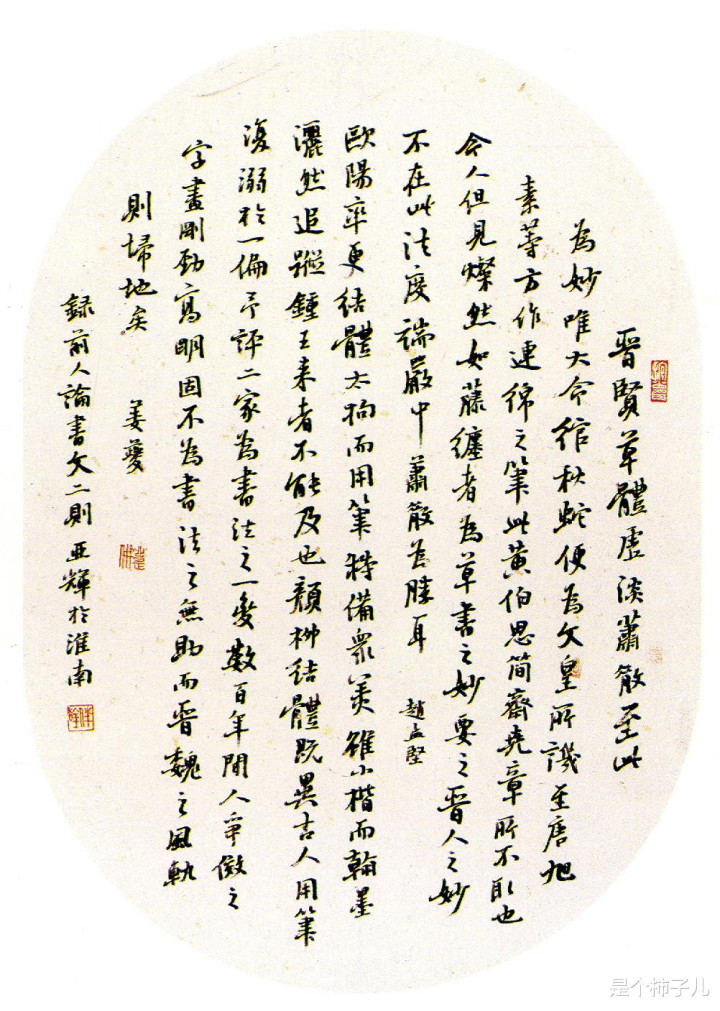 晉賢草體虛淡蕭散至此
為妙唯大令綰秋蛇便為文皇所譏至唐旭
素等方作連綿之筆此黃伯思簡齋堯章所不取也
今人但見燦然如藤纏者為草書之妙要之晉人之妙
不在此法度端嚴中蕭散為勝耳 趙孟堅
歐陽率更結體太拘而用筆特備眾美雖小楷而翰墨
灑然追蹤鍾王來者不能及也顏柳結體既異古人用筆
復溺於一偏予評二家為書法之一變數百年間人爭傚之
字畫剛勁高明固不為書法之無助而晉魏之風軌
則埽地矣 姜夔
錄前人論書文二則亞輝於淮南
是个柿子儿